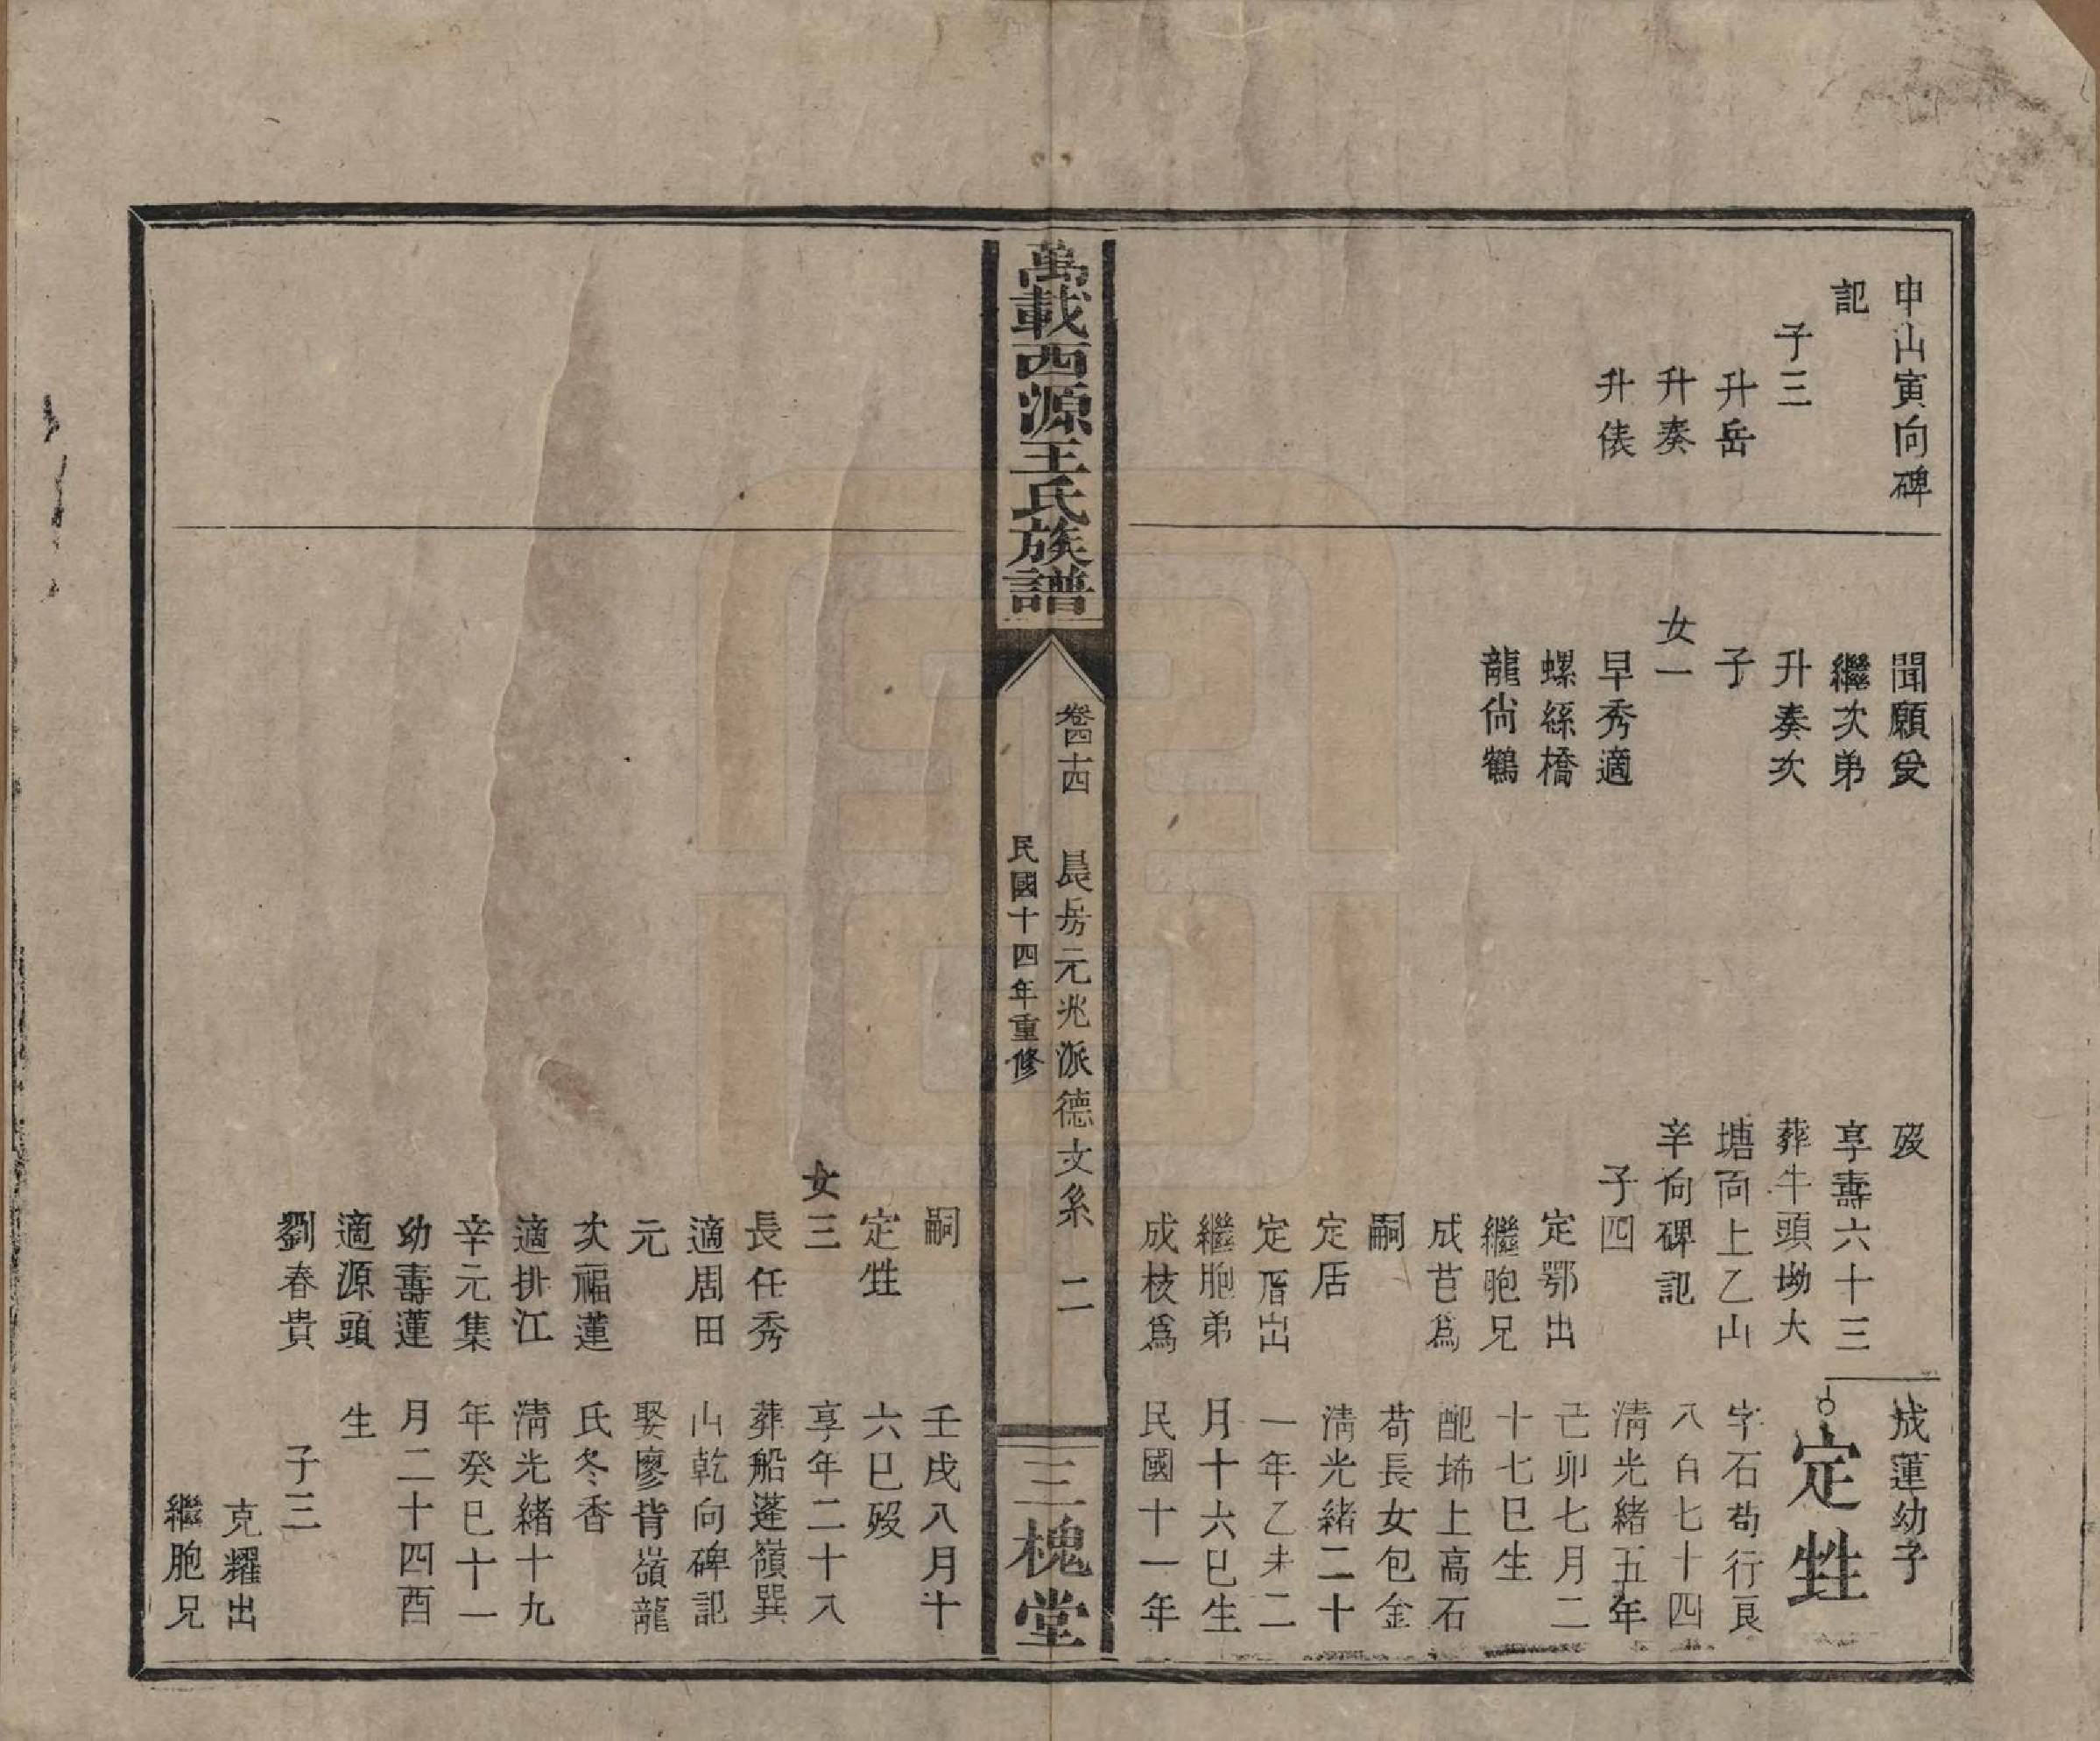 申山寅向碑
記
子三
升岳
升奏
升俵
聞願受
繼次弟
升奏次
子
女一
早秀適
螺絲橋
龍尙鶴
歿
享壽六十三
葬牛頭坳大
塘面上乙山
辛向碑記
子四
定鄂出
繼胞兄
成苢爲
嗣
定居
定厝出
繼胞弟
成枝爲
成蓮幼子
定甡
字石苟行艮
八百七十四
清光緒五年
己卯七月二
十七巳生
配埓上高石
苟長女包金
清光緒二十
一年乙未二
月十六巳生
民國十一年
萬載西源王氏族譜
卷四十四
長房元兆派德文系
二
民國十四年重修
三槐堂
嗣
定甡
女三
長任秀
適周田
元
次福蓮
適排江
辛元集
幼壽蓮
適源頭
劉春貴
壬戌八月廿
六巳歿
享年二十八
葬船蓬嶺巽
山乾向碑記
娶廖背嶺龍
氏冬香
清光緒十九
年癸巳十一
月二十四酉
生
子三
克耀出
繼胞兄